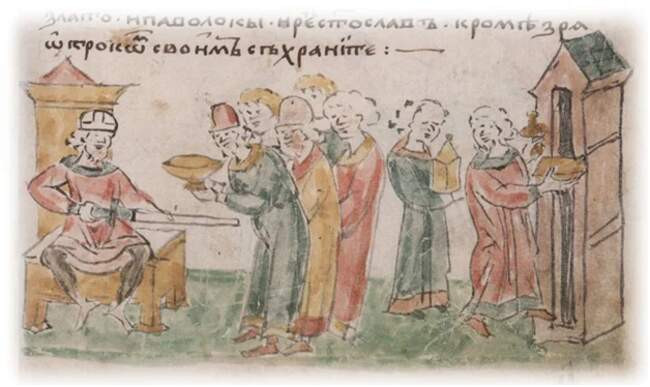 злато · ипаволокы · и реⷱ ст҃ославъ · кромѣ зря
ѡтрокѡⷨ своимъ съхраните :